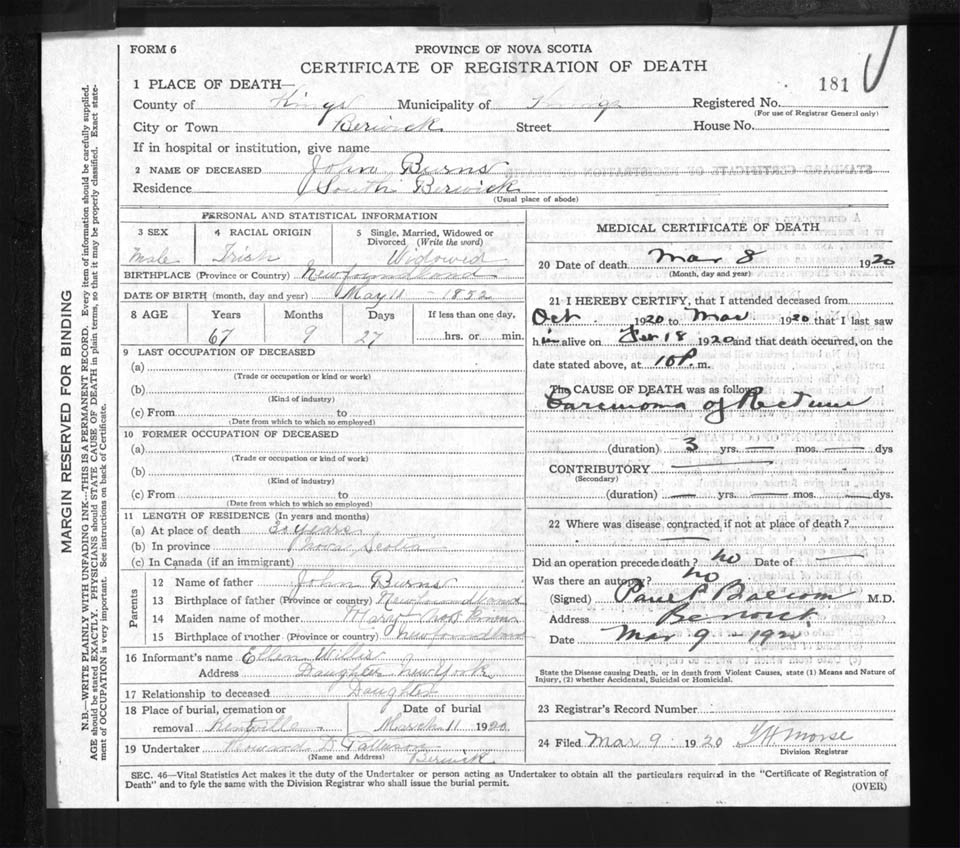 FORM 6
PROVINCE OF NOVA SCOTIA
CERTIFICATE OF REGISTRATION OF DEATH
181
1 PLACE OF DEATH—
County of Kings Municipality of Kings Registered No.
(For use of Registrar General only)
City or Town Berwick Street House No.
If in hospital or institution, give name
2 NAME OF DECEASED John Burns
Residence South Berwick
(Usual place of abode)
PERSONAL AND STATISTICAL INFORMATION
3 SEX 4 RACIAL ORIGIN 5 Single, Married, Widowed or Divorced (Write the word)
Male Irish Widowed
BIRTHPLACE (Province or Country) Newfoundland
DATE OF BIRTH (month, day and year) May 11 - 1852
8 AGE Years Months Days If less than one day,
67 9 27 hrs. or min.
9 LAST OCCUPATION OF DECEASED
(a)
(Trade or occupation or kind or work)
(b)
(Kind of industry)
(c) From to
(Date from which to which so employed)
10 FORMER OCCUPATION OF DECEASED
(a)
(Trade or occupation or kind of work)
(b)
(Kind of industry)
(c) From to
(Date from which to which so employed)
11 LENGTH OF RESIDENCE (In years and months)
(a) At place of death years
(b) In province Nova Scotia
(c) In Canada (if an immigrant)
Parents
12 Name of father John Burns
13 Birthplace of father (Province or country) Newfoundland
14 Maiden name of mother Mary
15 Birthplace of mother (Province or country) Newfoundland
16 Informant's name Ellen Willis
Address Daughter New York
17 Relationship to deceased Daughter
18 Place of burial, cremation or removal Kentville
Date of burial March 11 1920
19 Undertaker Howard D
(Name and Address) Berwick
MEDICAL CERTIFICATE OF DEATH
20 Date of death Mar 8 1920
(Month, day and year)
21 I HEREBY CERTIFY, that I attended deceased from
Oct 1920 to Mar 1920 that I last saw
him alive on Feb 18 1920 and that death occurred, on the
date stated above, at 10 P. m.
The CAUSE OF DEATH was as follows
Carcinoma of Rectum
(duration) 3 yrs. — mos. — dys
CONTRIBUTORY —
(Secondary)
(duration) — yrs. — mos. — dys.
22 Where was disease contracted if not at place of death?
—
Did an operation precede death? no Date of —
Was there an autopsy? no
(Signed) M.D.
Address Berwick
Date Mar 9 - 1920
State the Disease causing Death, or in death from Violent Causes, state (1) Means and Nature of
Injury, (2) whether Accidental, Suicidal or Homicidal.
23 Registrar's Record Number
24 Filed Mar 9 1920 Morse
Division Registrar
SEC. 46—Vital Statistics Act makes it the duty of the Undertaker or person acting as Undertaker to obtain all the particulars required in the "Certificate of Registration of
Death" and to fyle the same with the Division Registrar who shall issue the burial permit.
(OVER)
MARGIN RESERVED FOR BINDING
N.B.—WRITE PLAINLY WITH UNFADING INK—THIS IS A PERMANENT RECORD. Every item of information should be carefully supplied.
AGE should be stated EXACTLY. PHYSICIANS should STATE CAUSE OF DEATH in plain terms, so that it may be properly classified. Exact statement
of OCCUPATION is very important. See instructions on back of Certificate.